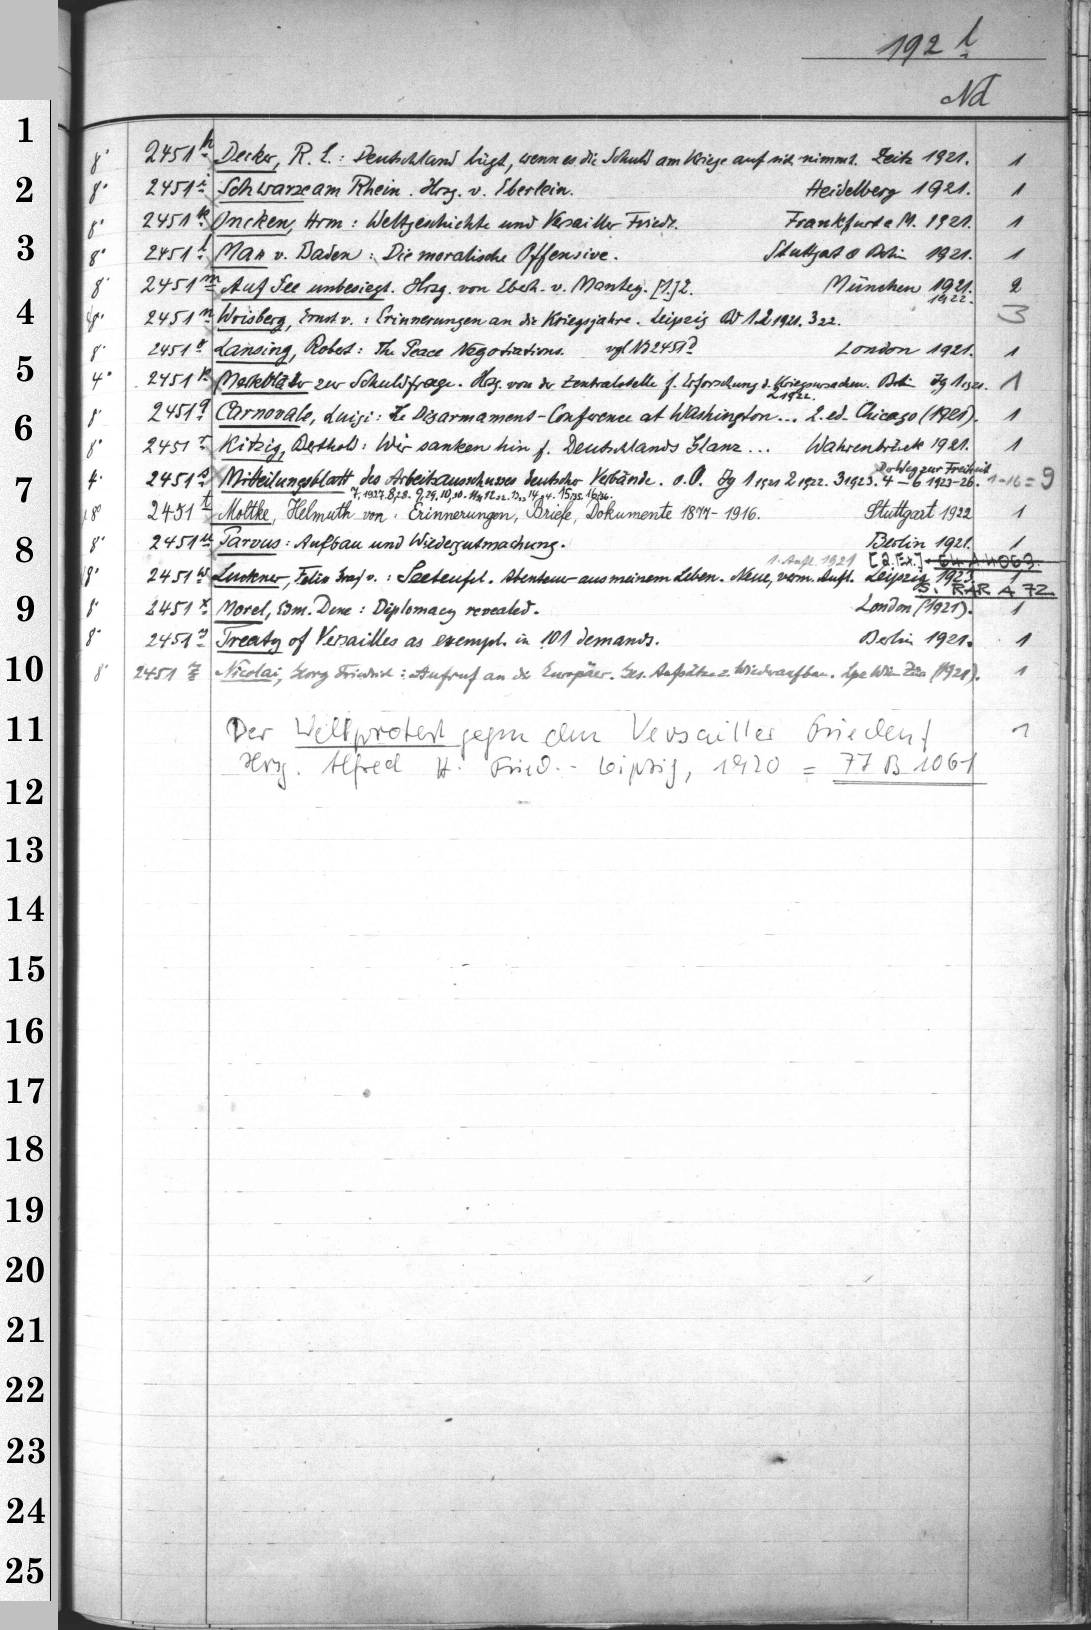 192 l
Nd
8° 2451 h Decker, R. L.: Deutschland lügt, wenn es die Schuld am Kriege auf sich nimmt. Zeitz 1921. 1
8° 2451 i Schwarze am Rhein. Hrzg. v. Eberlein. Heidelberg 1921. 1
8° 2451 k Oncken, Hrm: Weltgeschichte und Versailler Friede. Frankfurt a M. 1921. 1
8° 2451 l Max v. Baden: Die moralische Offensive. Stuttgart & Berlin 1921. 1
8° 2451 m Auf See unbesiegt. Hrzg. von Eberh. v. Mantey. [1.] 2. München 1921. 2
1922.
8° 2451 n Wrisberg, Ernst v.: Erinnerungen an die Kriegsjahre. Leipzig Bd 1.2 1921. 3 22. 3
8° 2451 o Lansing, Robert: The Peace Negotiations. vgl Nd 2451 London 1921. 1
4° 2451 p Merkblätter zur Schuldfrage. Hrzg. von der Zentralstelle f. Erforschung d. Kriegsursachen. Berlin Jg 1 1921. 1
2 1922.
8° 2451 q Carnovale, Luigi: The Disarmament-Conference at Washington... 2. ed. Chicago (1921). 1
8° 2451 r Kitzig, Berthold: Wir sanken hin f. Deutschlands Glanz... Wahrenbrück 1921. 1
Der Weg zur Freiheit
4° 2451 s Mitteilungsblatt des Arbeitsausschusses deutscher Verbände. o. O. Jg 1 1921 2 1922. 3 1923. 4-6 1923-26. 1-16 = 9
7. 1927. 8, 28. 9, 29, 10, 30. 11, 31, 12, 32. 13, 33, 14, 34. 15, 35. 16, 36.
8° 2451 t Moltke, Helmuth von: Erinnerungen, Briefe, Dokumente 1877-1916. Stuttgart 1922 1
8° 2451 u Parvus: Aufbau und Wiedergutmachung. Berlin 1921. 1
1. Aufl. 1921 [2. Ex.] 64 A 4063.
8° 2451 w Luckner, Felix Graf v.: Seeteufel. Abenteuer aus meinem Leben. Neue, verm. Aufl. Leipzig 1923. 1
s. RAR A 72
8° 2451 x Morel, Edm. Dene: Diplomacy revealed. London (1921). 1
8° 2451 y Treaty of Versailles as exempl. in 101 demands. Berlin 1921. 1
8° 2451 z Nicolai, Georg Friedrich: Aufruf an die Europäer. Ges. Aufsätze z. Wiederaufbau. Lpz Wien Zür (1921). 1
Der Weltprotest gegen den Versailler Frieden. 1
Hrsg. Alfred H. Fried. - Leipzig, 1920 = 77 B 1061
1
2
3
4
5
6
7
8
9
10
11
12
13
14
15
16
17
18
19
20
21
22
23
24
25